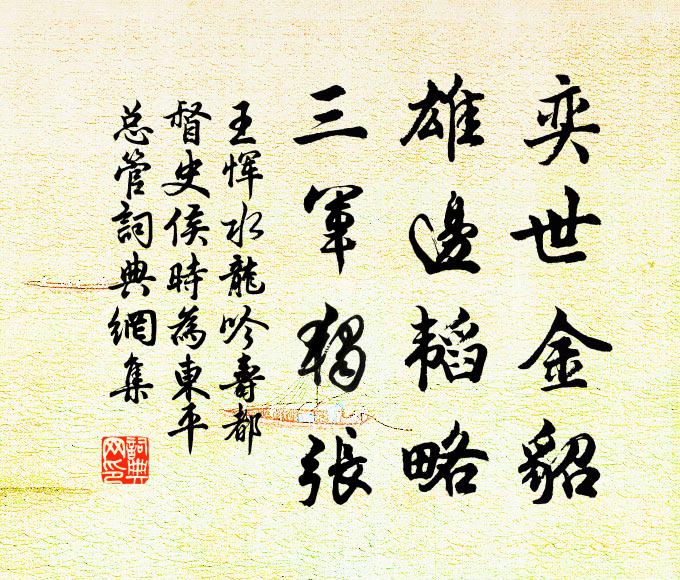 奕世金貂
雄邊韜略
三軍獨張
王惲水龍吟壽都
督史侯時為東平
总管詞典網集
詞典網印